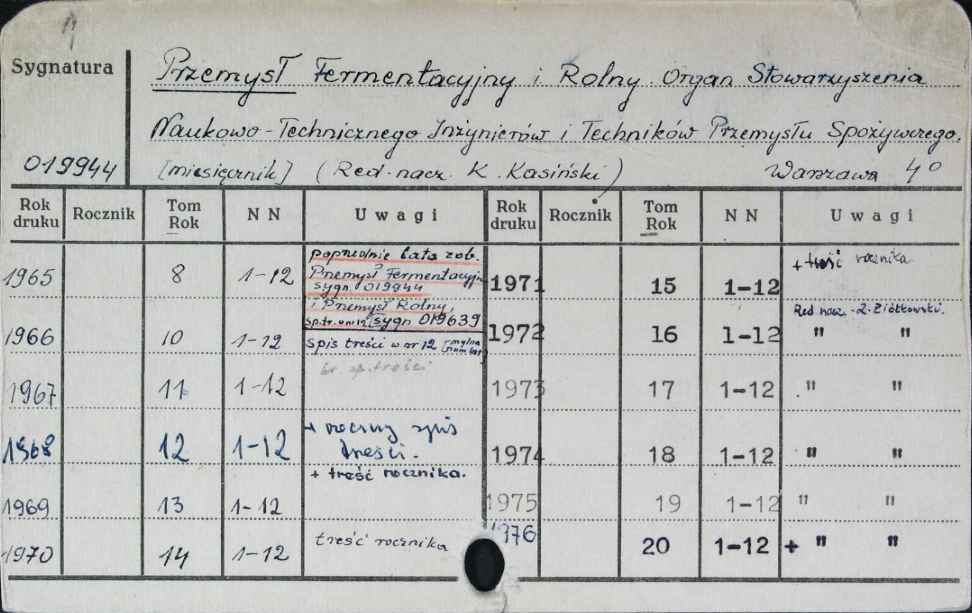 Sygnatura
Przemysł Fermentacyjny i Rolny. Organ Stowarzyszenia
Naukowo-Technicznego Inżynierów i Techników Przemysłu Spożywczego.
019944 [miesięcznik] (Red. nacz. K. Kasiński) Warszawa 4°
Rok druku Rocznik Tom Rok NN Uwagi Rok druku Rocznik Tom Rok NN Uwagi
1965 8 1-12 poprzednie lata zob. Przemysł Fermentacyjn sygn. 019944 1971 15 1-12 + treść rocznika
i Przemysł Rolny, sygn 019639
1966 10 1-12 spis treści w nr 12 [mylna 1972 16 1-12 Red nacz. Z. Ziółkowski. " "
1967 11 1-12 br. sp. treści 1973 17 1-12 " "
1968 12 1-12 + roczny spis treści. 1974 18 1-12 " "
+ treść rocznika.
1969 13 1-12 1975 19 1-12 " "
1970 14 1-12 treść rocznika 1976 20 1-12 + " "